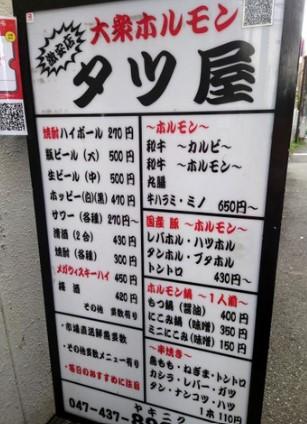 激安店
大衆ホルモン
タツ屋
焼酎ハイボール 270円
瓶ビール(大) 500円
生ビール(中) 500円
ホッピー(白)(黒) 470円
サワー(各種) 270円〜
清酒(2合) 430円
焼酎(各種) 300円
メガウィスキーハイ 450円
梅酒 420円
その他 多数有り
・市場直送鮮魚多数
・その他多数メニュー有り
・毎日のおすすめに注目
〜ホルモン〜
和牛 〜カルビ〜
和牛 〜ホルモン〜
丸腸
牛ハラミ・ミノ 650円〜
国産 豚 〜ホルモン〜
レバホル・ハツホル
タンホル・ブタホル
トントロ 430円〜
ホルモン鍋 〜1人前〜
もつ鍋(醤油) 400円
にこみ鍋(味噌) 350円
ミニにこみ(味噌) 150円
〜串焼き〜
鳥もも・ねぎま・トントロ
カシラ・レバー・ガツ
タン・ナンコツ・ハツ
1本 110円
ヤキニク
047-437-